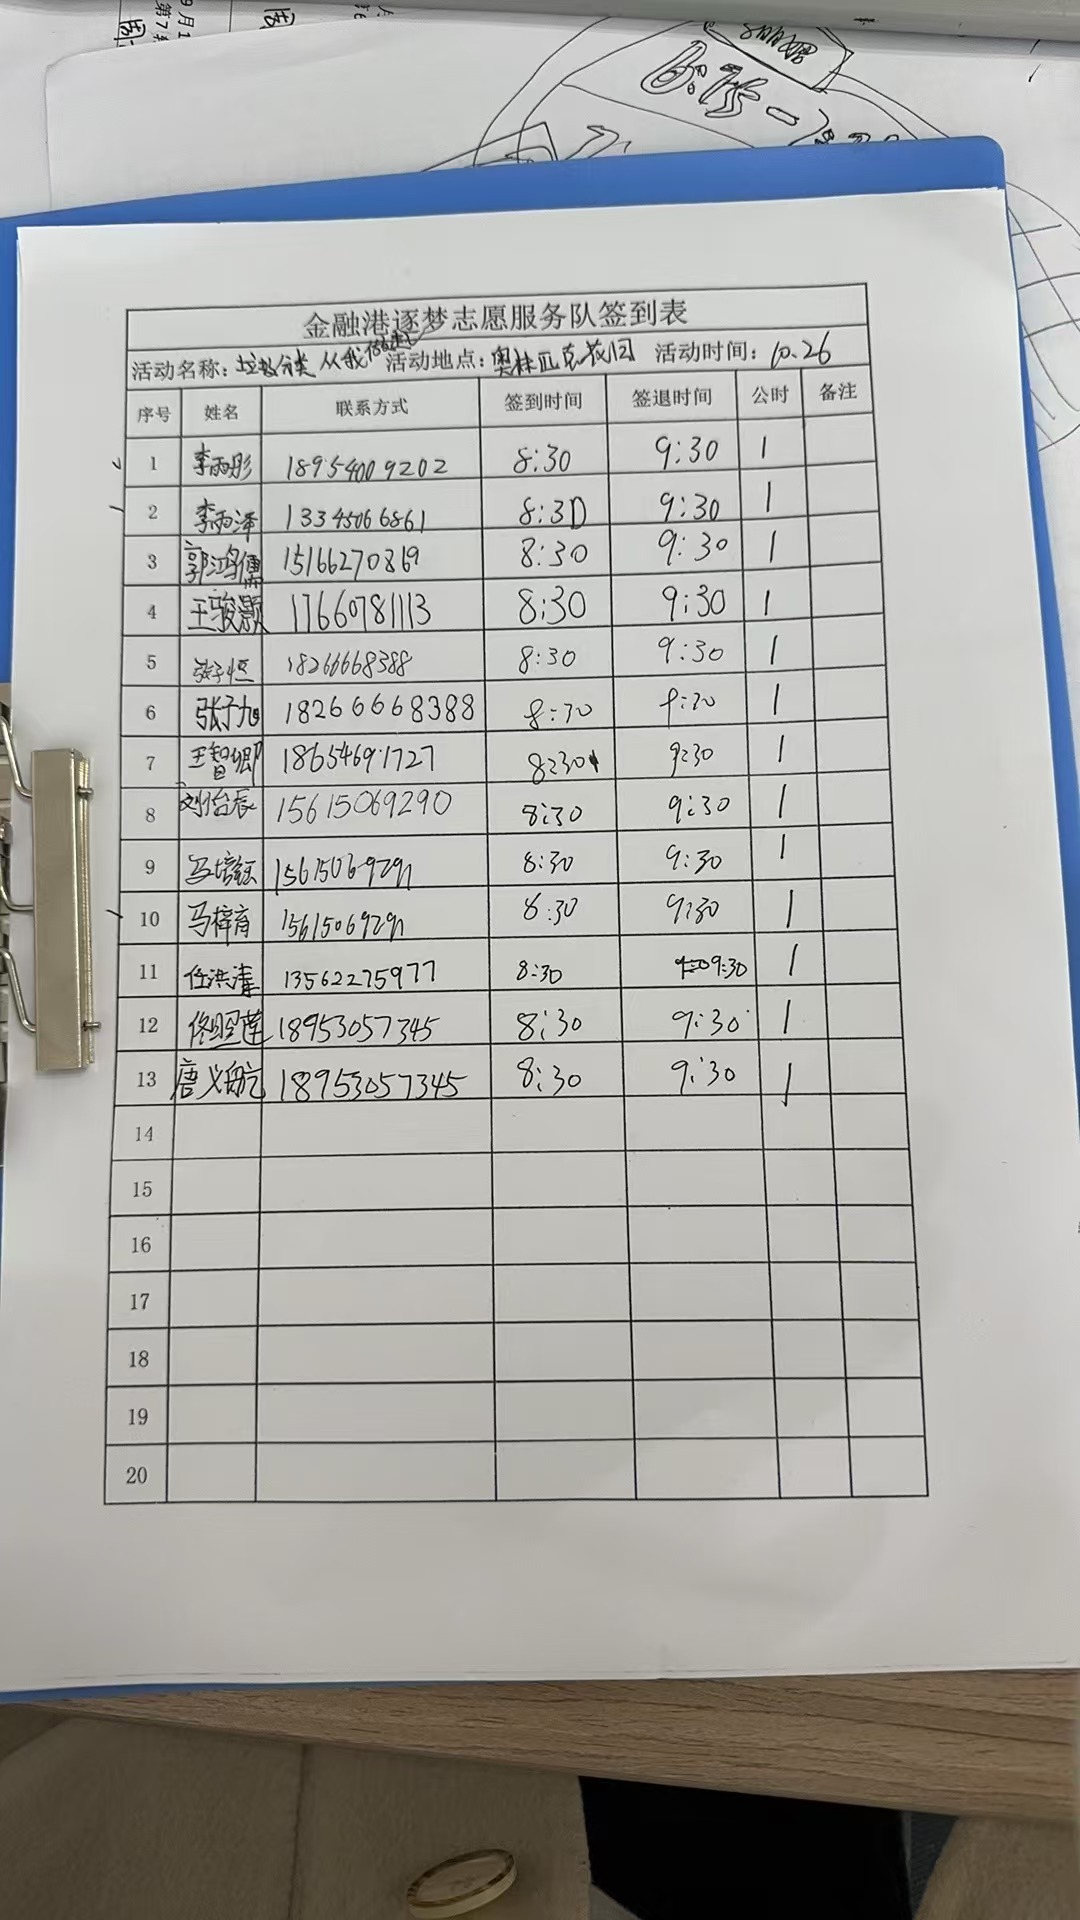 9月1
第7
周
6:45-7
金融港逐梦志愿服务队签到表
活动名称：垃圾分类 从我做起 活动地点：奥林匹克花园 活动时间：10.26
序号 姓名 联系方式 签到时间 签退时间 公时 备注
1 李雨彤 18954009202 8:30 9:30 1
2 李雨泽 13345066861 8:30 9:30 1
3 郭鸿儒 15166270869 8:30 9:30 1
4 王骏灏 17660781113 8:30 9:30 1
5 张子恒 18266668388 8:30 9:30 1
6 张子旭 18266668388 8:30 9:30 1
7 王智卿 18654691727 8:30 9:30 1
8 刘怡辰 15615069290 8:30 9:30 1
9 马培钰 15615069291 8:30 9:30 1
10 马梓育 15615069291 8:30 9:30 1
11 任洪清 13562275977 8:30 9:30 1
12 佟昭莲 18953057345 8:30 9:30 1
13 唐义航 18953057345 8:30 9:30 1
14
15
16
17
18
19
20